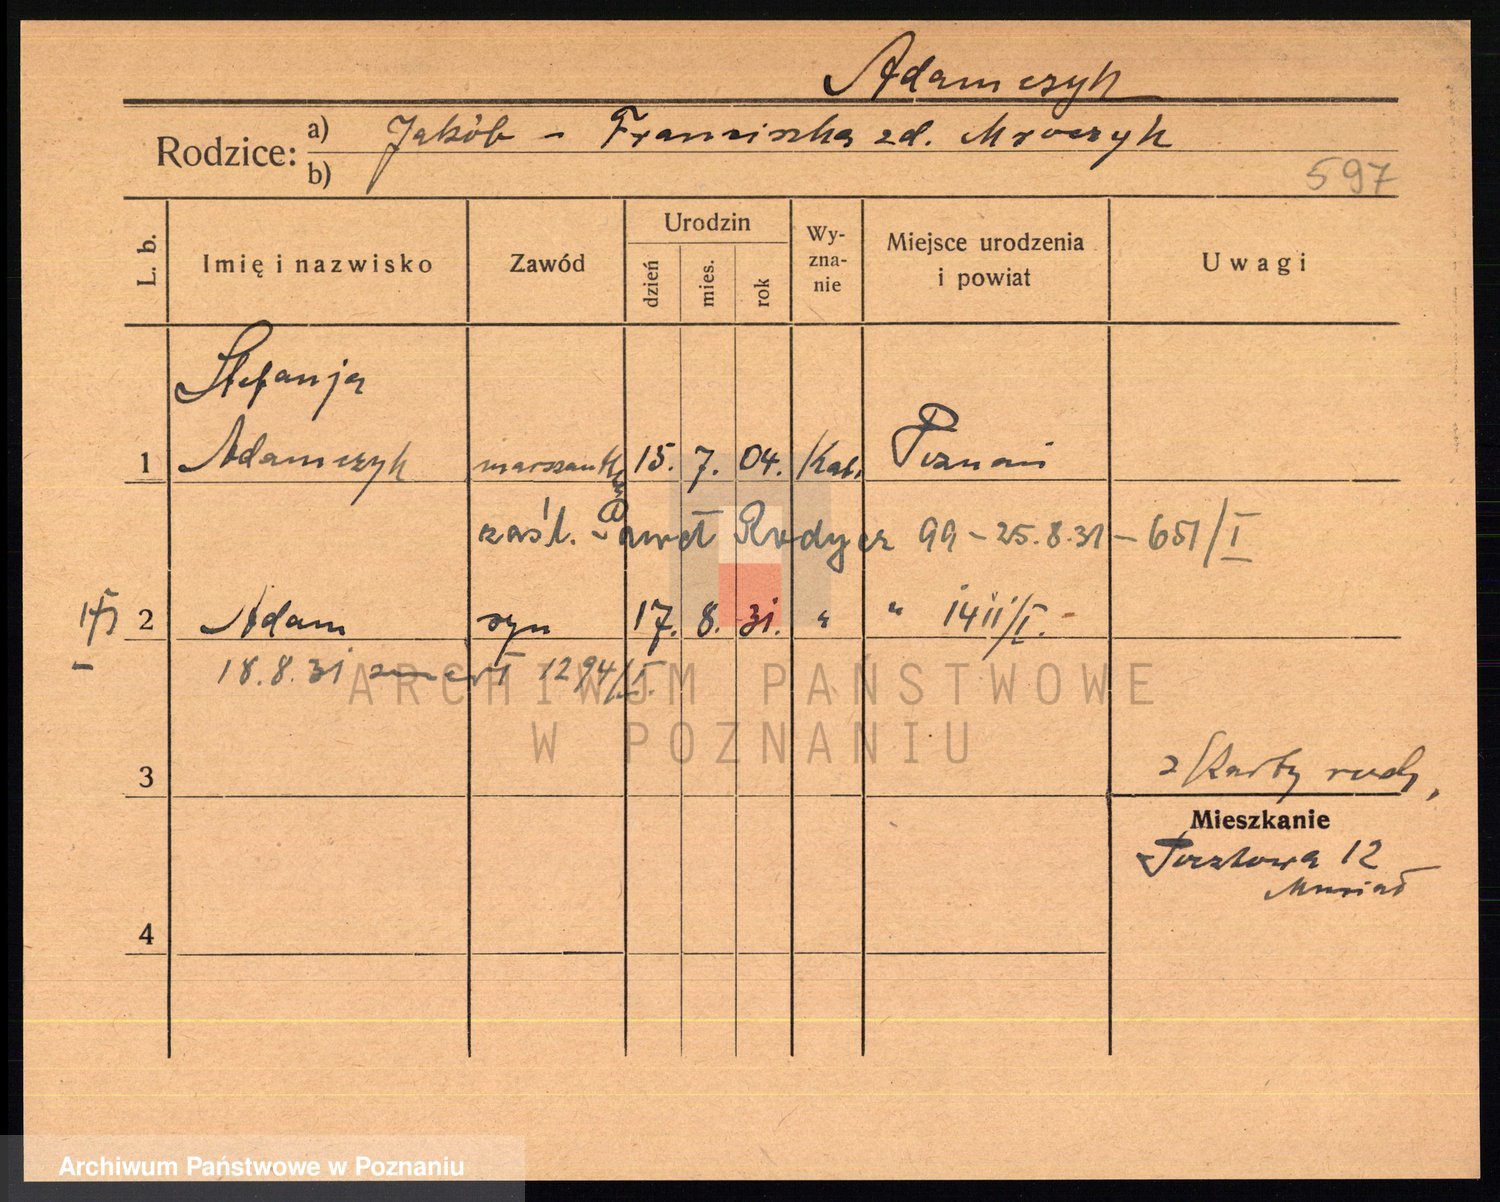 Adamczyk
Rodzice: a) Jakób - Franciszka zd. Mroczyk
b)
597
L. b. Imię i nazwisko Zawód Urodzin dzień mies. rok Wy-zna-nie Miejsce urodzenia i powiat Uwagi
Stefanja
1 Adamczyk 15. 7. 04. Kat. Poznań
zaśl. Paweł 99 - 25.8.31 - 651/I
2 Adam syn 17. 8. 31. " " 1411/I.
18.8.31 zmarł 1294/I.
ARCHIWUM PAŃSTWOWE
W POZNANIU
3 z Karty rodz,
Mieszkanie
Pocztowa 12
4
Archiwum Państwowe w Poznaniu